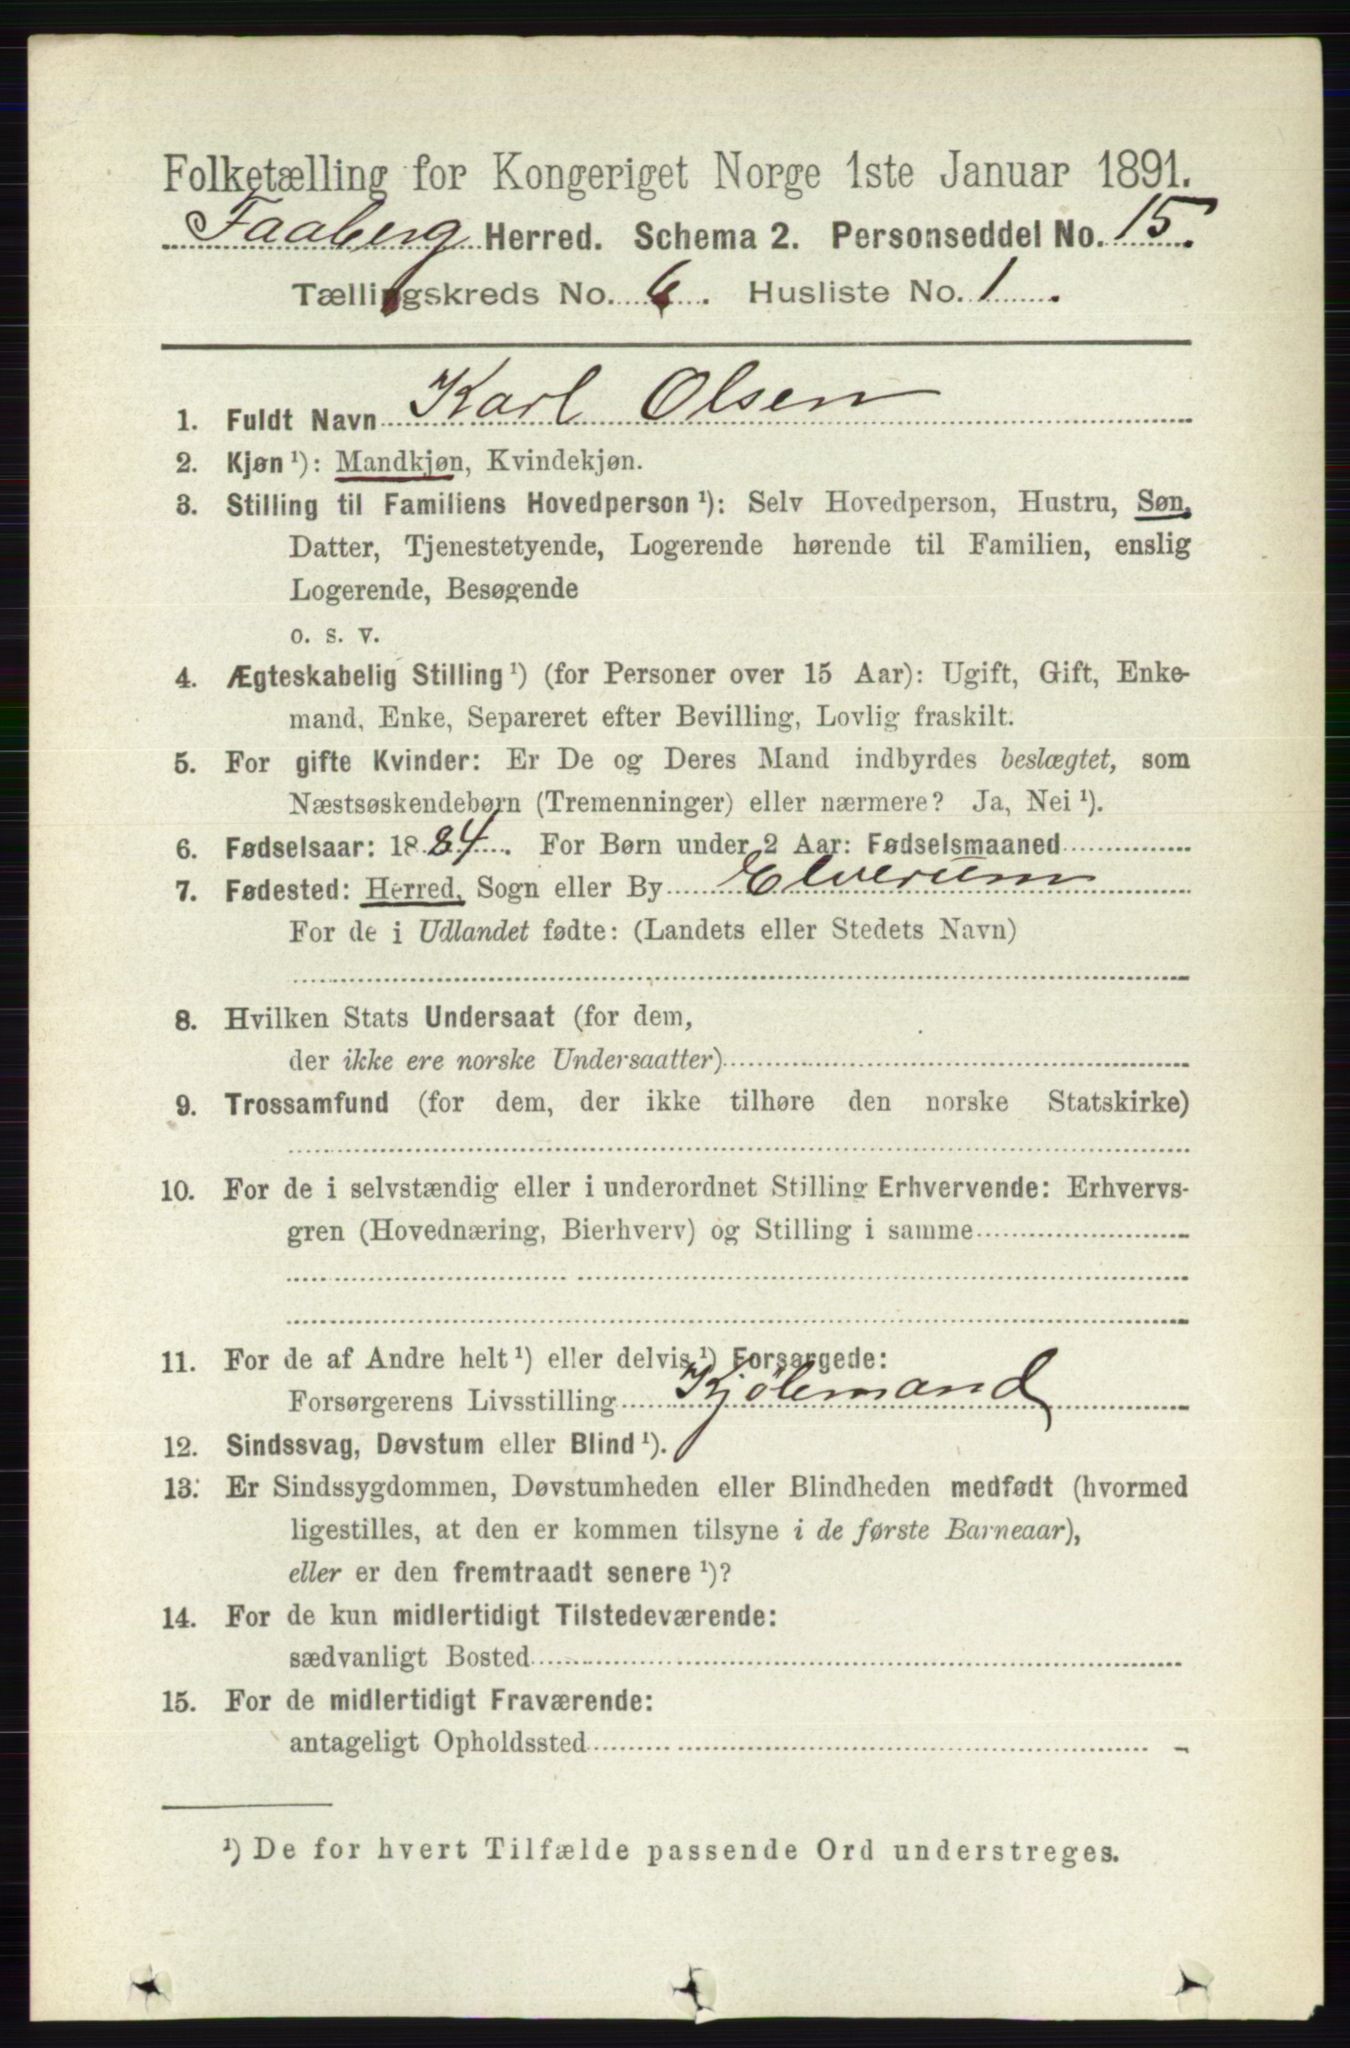 Folketælling for Kongeriget Norge 1ste Januar 1891.
Faaberg Herred. Schema 2. Personseddel No. 15.
Tællingskreds No. 6. Husliste No. 1.
1. Fuldt Navn Karl Olsen
2. Kjøn ¹): Mandkjøn, Kvindekjøn.
3. Stilling til Familiens Hovedperson ¹): Selv Hovedperson, Hustru, Søn,
Datter, Tjenestetyende, Logerende hørende til Familien, enslig
Logerende, Besøgende
o. s. v.
4. Ægteskabelig Stilling ¹) (for Personer over 15 Aar): Ugift, Gift, Enke-
mand, Enke, Separeret efter Bevilling, Lovlig fraskilt.
5. For gifte Kvinder: Er De og Deres Mand indbyrdes beslægtet, som
Næstsøskendebørn (Tremenninger) eller nærmere? Ja, Nei ¹).
6. Fødselsaar: 1884. For Børn under 2 Aar: Fødselsmaaned
7. Fødested: Herred, Sogn eller By Elverum
For de i Udlandet fødte: (Landets eller Stedets Navn)
8. Hvilken Stats Undersaat (for dem,
der ikke ere norske Undersaatter)
9. Trossamfund (for dem, der ikke tilhøre den norske Statskirke)
10. For de i selvstændig eller i underordnet Stilling Erhvervende: Erhvervs-
gren (Hovednæring, Bierhverv) og Stilling i samme
11. For de af Andre helt ¹) eller delvis ¹) Forsørgede:
Forsørgerens Livsstilling Kjølemand
12. Sindssvag, Døvstum eller Blind ¹).
13. Er Sindssygdommen, Døvstumheden eller Blindheden medfødt (hvormed
ligestilles, at den er kommen tilsyne i de første Barneaar),
eller er den fremtraadt senere ¹)?
14. For de kun midlertidigt Tilstedeværende:
sædvanligt Bosted
15. For de midlertidigt Fraværende:
antageligt Opholdssted
¹) De for hvert Tilfælde passende Ord understreges.